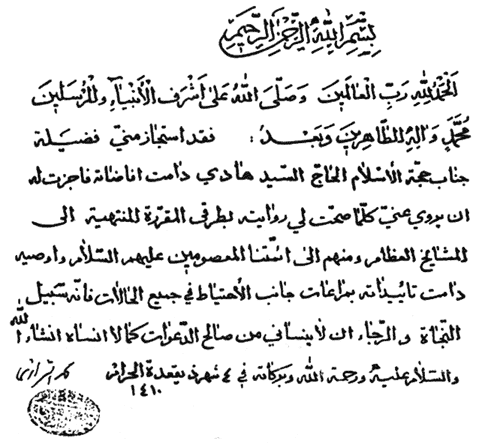 بِسْمِ اللهِ الرَّحْمٰنِ الرَّحِيمِ
اَلْحَمْدُ لِلّٰهِ رَبِّ الْعَالَمِينَ وَصَلَّى اللهُ عَلىٰ أَشْرَفِ الْأَنْبِيَاءِ وَالْمُرْسَلِينَ
مُحَمَّدٍ وَآلِهِ الطَّاهِرِينَ وَبَعْدُ : فقد استجاز منّي فضيلة
جناب حجة الاسلام الحاج السيد هادي دامت افاضاته فاجزت له
ان يروي عنّي كلّما صحت لي روايته بطرقي المقررة المنتهية الى
المشايخ العظام ومنهم الى ائمّتنا المعصومين عليهم السّلام واوصيه
دامت تاييداته بمراعات جانب الأحتياط في جميع الحالات فانّه سبيل
النجاة والرّجاء ان لا ينساني من صالح الدّعوات كما لا انساه انشاء الله
والسّلام عليه ورحمة الله وبركاته في ٤ شهر ذيقعدة الحرام
١٤١٠